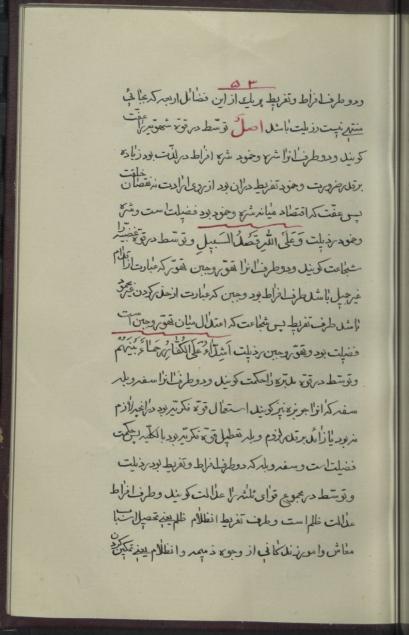 ۵۳
و دو طرف افراط و تفریط هر یك از این فضائل اربعه که بجائی
منتهی نیست رذیلت باشد اصل توسط در قوۀ شهویه را عفت
کویند و دو طرف انرا شره و خمود شره افراط در لذت بود زیاده
بر قدر ضرورت و خمود تفریط در ان بود از روی ارادت نه نقصان خلقت
پس عفت که اقتصاد میانه شره و خمود بود فضیلت است و شره
و خمود رذیلت وَعَلَی اللهِ قَصْدُ السَّبیلِ و توسط در قوه غضبیه را
شجاعت کویند و دو طرف انرا تهور و جبن تهور که عبارت از اقدام
غیر جمیل باشد طرف افراط بود و جبن که عبارت از حذر کردن غیر محمود
باشد طرف تفریط پس شجاعت که اعتدال میان تهور و جبن است
فضیلت بود و تهور و جبن رذیلت اَشِدّاءُ عَلَی الکُفّارِ رُحَماءُ بَینَهُم
و توسط در قوه مدرکه را حکمت کویند و دو طرف انرا سفه و بله
سفه که انرا جربزه نیز کویند استعمال قوۀ فکریه بود در انچه لازم
نبود یا زائد بر قدر لزوم و بله تعطیل قوه فکریه بود بالکلیه پس حکمت
فضیلت است و سفه و بله که دو طرف افراط و تفریط بود رذیلت
و توسط در مجموع قوای ثلثه را عدالت کویند و طرف افراط
عدالت ظلم است و طرف تفریط انظلام ظلم یعنی تحصیل اسباب
معاش و امور زندکانی از وجوه ذمیمه و انظلام یعنی تمکین کردن